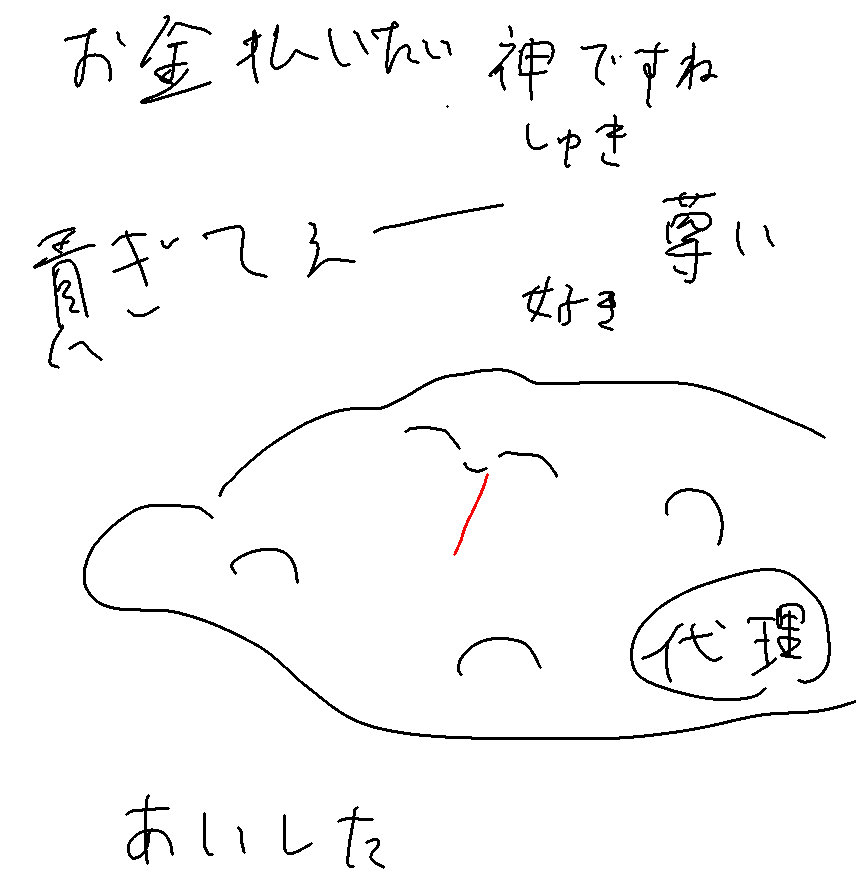 お金払いたい 神ですね
しゅき
貢ぎてえー
尊い
好き
代理
あいした